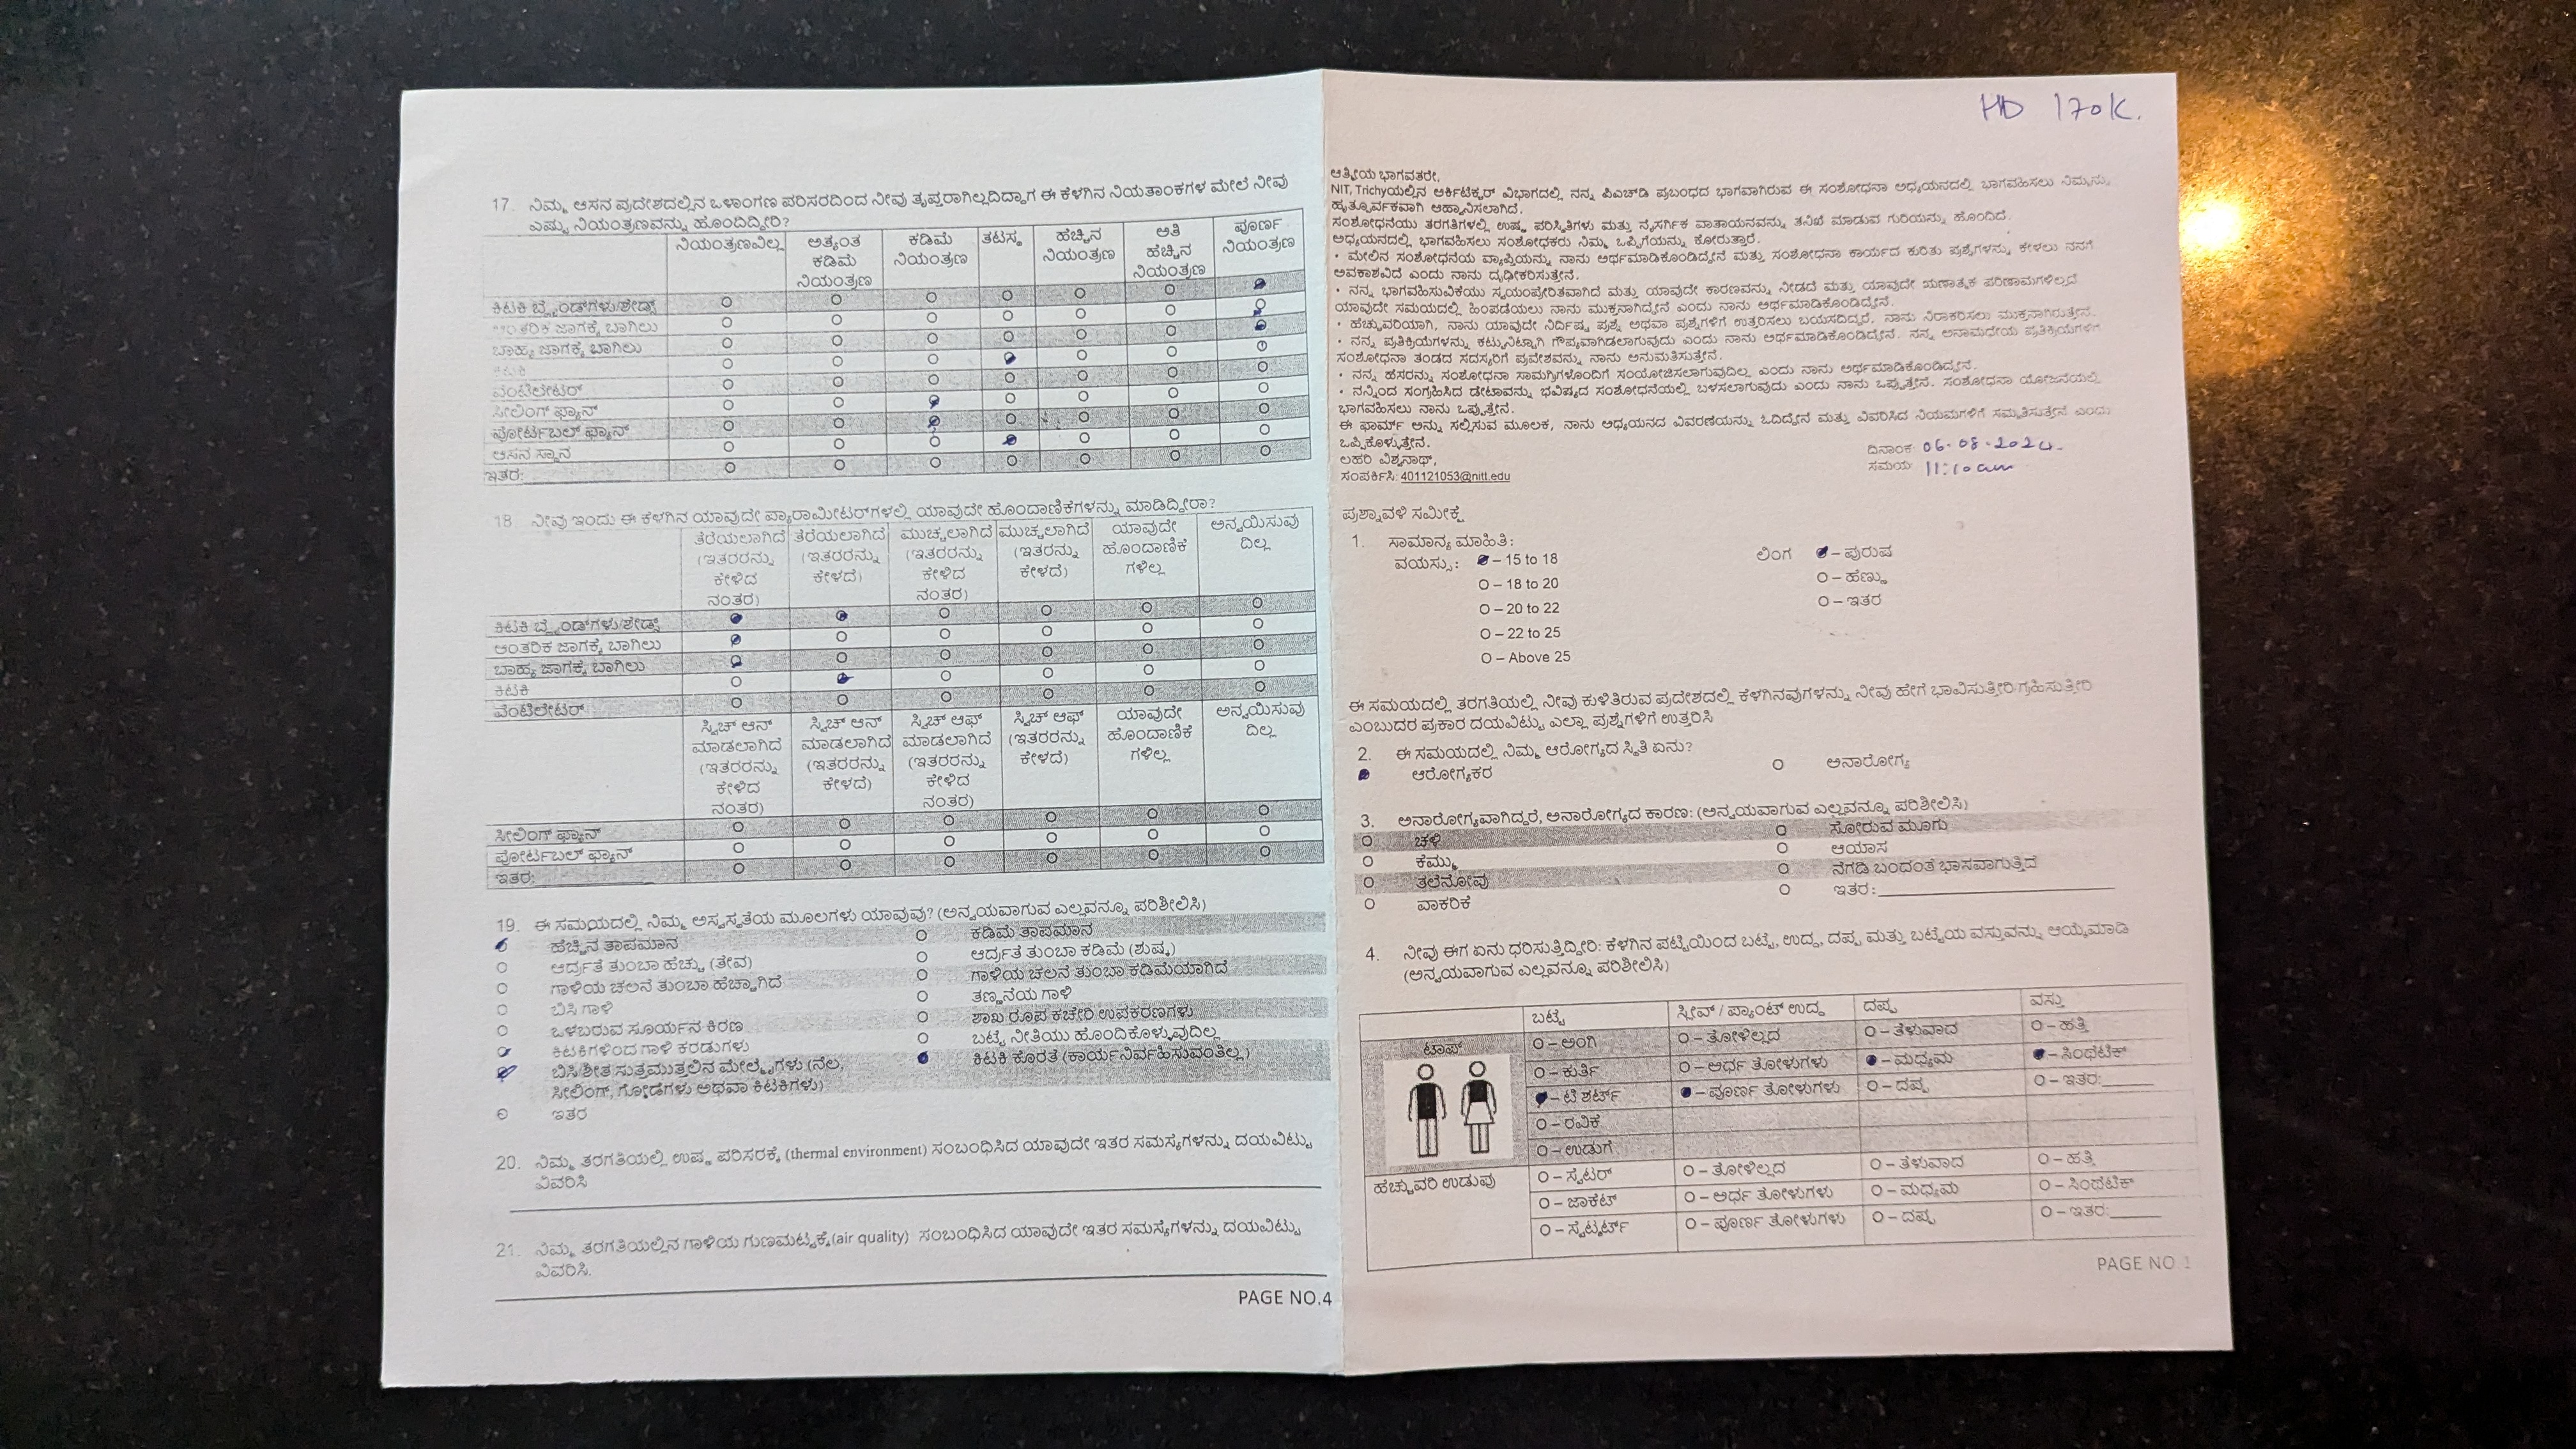 17. ನಿಮ್ಮ ಆಸನ ಪ್ರದೇಶದಲ್ಲಿನ ಒಳಾಂಗಣ ಪರಿಸರದಿಂದ ನೀವು ತೃಪ್ತರಾಗಿಲ್ಲದಿದ್ದಾಗ ಈ ಕೆಳಗಿನ ನಿಯತಾಂಕಗಳ ಮೇಲೆ ನೀವು
ಎಷ್ಟು ನಿಯಂತ್ರಣವನ್ನು ಹೊಂದಿದ್ದೀರಿ?
ನಿಯಂತ್ರಣವಿಲ್ಲ ಅತ್ಯಂತ ಕಡಿಮೆ ನಿಯಂತ್ರಣ ಕಡಿಮೆ ನಿಯಂತ್ರಣ ತಟಸ್ಥ ಹೆಚ್ಚಿನ ನಿಯಂತ್ರಣ ಅತಿ ಹೆಚ್ಚಿನ ನಿಯಂತ್ರಣ ಪೂರ್ಣ ನಿಯಂತ್ರಣ
ಕಿಟಕಿ ಬ್ಲೈಂಡ್‌ಗಳು/ಶೇಡ್ಸ್
ಆಂತರಿಕ ಜಾಗಕ್ಕೆ ಬಾಗಿಲು
ಬಾಹ್ಯ ಜಾಗಕ್ಕೆ ಬಾಗಿಲು
ಕಿಟಕಿ
ವೆಂಟಿಲೇಟರ್
ಸೀಲಿಂಗ್ ಫ್ಯಾನ್
ಪೋರ್ಟಬಲ್ ಫ್ಯಾನ್
ಆಸನ ಸ್ಥಾನ
ಇತರ:
18 ನೀವು ಇಂದು ಈ ಕೆಳಗಿನ ಯಾವುದೇ ಪ್ಯಾರಾಮೀಟರ್‌ಗಳಲ್ಲಿ ಯಾವುದೇ ಹೊಂದಾಣಿಕೆಗಳನ್ನು ಮಾಡಿದ್ದೀರಾ?
ತೆರೆಯಲಾಗಿದೆ (ಇತರರನ್ನು ಕೇಳಿದ ನಂತರ) ತೆರೆಯಲಾಗಿದೆ (ಇತರರನ್ನು ಕೇಳದೆ) ಮುಚ್ಚಲಾಗಿದೆ (ಇತರರನ್ನು ಕೇಳಿದ ನಂತರ) ಮುಚ್ಚಲಾಗಿದೆ (ಇತರನ್ನು ಕೇಳದೆ) ಯಾವುದೇ ಹೊಂದಾಣಿಕೆ ಗಳಿಲ್ಲ ಅನ್ವಯಿಸುವು ದಿಲ್ಲ
ಕಿಟಕಿ ಬ್ಲೈಂಡ್‌ಗಳು/ಶೇಡ್ಸ್
ಆಂತರಿಕ ಜಾಗಕ್ಕೆ ಬಾಗಿಲು
ಬಾಹ್ಯ ಜಾಗಕ್ಕೆ ಬಾಗಿಲು
ಕಿಟಕಿ
ವೆಂಟಿಲೇಟರ್
ಸ್ವಿಚ್ ಆನ್ ಮಾಡಲಾಗಿದೆ (ಇತರರನ್ನು ಕೇಳಿದ ನಂತರ) ಸ್ವಿಚ್ ಆನ್ ಮಾಡಲಾಗಿದೆ (ಇತರರನ್ನು ಕೇಳದೆ) ಸ್ವಿಚ್ ಆಫ್ ಮಾಡಲಾಗಿದೆ (ಇತರರನ್ನು ಕೇಳಿದ ನಂತರ) ಸ್ವಿಚ್ ಆಫ್ (ಇತರರನ್ನು ಕೇಳದೆ) ಯಾವುದೇ ಹೊಂದಾಣಿಕೆ ಗಳಿಲ್ಲ ಅನ್ವಯಿಸುವು ದಿಲ್ಲ
ಸೀಲಿಂಗ್ ಫ್ಯಾನ್
ಪೋರ್ಟಬಲ್ ಫ್ಯಾನ್
ಇತರ:
19. ಈ ಸಮಯದಲ್ಲಿ ನಿಮ್ಮ ಅಸ್ವಸ್ಥತೆಯ ಮೂಲಗಳು ಯಾವುವು? (ಅನ್ವಯವಾಗುವ ಎಲ್ಲವನ್ನೂ ಪರಿಶೀಲಿಸಿ)
ಹೆಚ್ಚಿನ ತಾಪಮಾನ ಕಡಿಮೆ ತಾಪಮಾನ
ಆರ್ದ್ರತೆ ತುಂಬಾ ಹೆಚ್ಚು (ತೇವ) ಆರ್ದ್ರತೆ ತುಂಬಾ ಕಡಿಮೆ (ಶುಷ್ಕ)
ಗಾಳಿಯ ಚಲನೆ ತುಂಬಾ ಹೆಚ್ಚಾಗಿದೆ ಗಾಳಿಯ ಚಲನೆ ತುಂಬಾ ಕಡಿಮೆಯಾಗಿದೆ
ಬಿಸಿ ಗಾಳಿ ತಣ್ಣನೆಯ ಗಾಳಿ
ಒಳಬರುವ ಸೂರ್ಯನ ಕಿರಣ ಶಾಖ ರೂಪ ಕಚೇರಿ ಉಪಕರಣಗಳು
ಕಿಟಕಿಗಳಿಂದ ಗಾಳಿ ಕರಡುಗಳು ಬಟ್ಟೆ ನೀತಿಯು ಹೊಂದಿಕೊಳ್ಳುವುದಿಲ್ಲ
ಬಿಸಿ/ಶೀತ ಸುತ್ತಮುತ್ತಲಿನ ಮೇಲ್ಮೈಗಳು (ನೆಲ, ಕಿಟಕಿ ಕೊರತೆ (ಕಾರ್ಯನಿರ್ವಹಿಸುವಂತಿಲ್ಲ)
ಸೀಲಿಂಗ್, ಗೋಡೆಗಳು ಅಥವಾ ಕಿಟಕಿಗಳು)
ಇತರ
20. ನಿಮ್ಮ ತರಗತಿಯಲ್ಲಿ ಉಷ್ಣ ಪರಿಸರಕ್ಕೆ (thermal environment) ಸಂಬಂಧಿಸಿದ ಯಾವುದೇ ಇತರ ಸಮಸ್ಯೆಗಳನ್ನು ದಯವಿಟ್ಟು
ವಿವರಿಸಿ
21. ನಿಮ್ಮ ತರಗತಿಯಲ್ಲಿನ ಗಾಳಿಯ ಗುಣಮಟ್ಟಕ್ಕೆ(air quality) ಸಂಬಂಧಿಸಿದ ಯಾವುದೇ ಇತರ ಸಮಸ್ಯೆಗಳನ್ನು ದಯವಿಟ್ಟು
ವಿವರಿಸಿ.
PAGE NO.4
HD 170K.
ಆತ್ಮೀಯ ಭಾಗವತರೇ,
NIT, Trichyಯಲ್ಲಿನ ಆರ್ಕಿಟೆಕ್ಚರ್ ವಿಭಾಗದಲ್ಲಿ ನನ್ನ ಪಿಎಚ್‌ಡಿ ಪ್ರಬಂಧದ ಭಾಗವಾಗಿರುವ ಈ ಸಂಶೋಧನಾ ಅಧ್ಯಯನದಲ್ಲಿ ಭಾಗವಹಿಸಲು ನಿಮ್ಮನ್ನು
ಹೃತ್ಪೂರ್ವಕವಾಗಿ ಆಹ್ವಾನಿಸಲಾಗಿದೆ.
ಸಂಶೋಧನೆಯು ತರಗತಿಗಳಲ್ಲಿ ಉಷ್ಣ ಪರಿಸ್ಥಿತಿಗಳು ಮತ್ತು ನೈಸರ್ಗಿಕ ವಾತಾಯನವನ್ನು ತನಿಖೆ ಮಾಡುವ ಗುರಿಯನ್ನು ಹೊಂದಿದೆ.
ಅಧ್ಯಯನದಲ್ಲಿ ಭಾಗವಹಿಸಲು ಸಂಶೋಧಕರು ನಿಮ್ಮ ಒಪ್ಪಿಗೆಯನ್ನು ಕೋರುತ್ತಾರೆ.
• ಮೇಲಿನ ಸಂಶೋಧನೆಯ ವ್ಯಾಪ್ತಿಯನ್ನು ನಾನು ಅರ್ಥಮಾಡಿಕೊಂಡಿದ್ದೇನೆ ಮತ್ತು ಸಂಶೋಧನಾ ಕಾರ್ಯದ ಕುರಿತು ಪ್ರಶ್ನೆಗಳನ್ನು ಕೇಳಲು ನನಗೆ
ಅವಕಾಶವಿದೆ ಎಂದು ನಾನು ದೃಢೀಕರಿಸುತ್ತೇನೆ.
• ನನ್ನ ಭಾಗವಹಿಸುವಿಕೆಯು ಸ್ವಯಂಪ್ರೇರಿತವಾಗಿದೆ ಮತ್ತು ಯಾವುದೇ ಕಾರಣವನ್ನು ನೀಡದೆ ಮತ್ತು ಯಾವುದೇ ಋಣಾತ್ಮಕ ಪರಿಣಾಮಗಳಿಲ್ಲದೆ
ಯಾವುದೇ ಸಮಯದಲ್ಲಿ ಹಿಂಪಡೆಯಲು ನಾನು ಮುಕ್ತನಾಗಿದ್ದೇನೆ ಎಂದು ನಾನು ಅರ್ಥಮಾಡಿಕೊಂಡಿದ್ದೇನೆ.
• ಹೆಚ್ಚುವರಿಯಾಗಿ, ನಾನು ಯಾವುದೇ ನಿರ್ದಿಷ್ಟ ಪ್ರಶ್ನೆ ಅಥವಾ ಪ್ರಶ್ನೆಗಳಿಗೆ ಉತ್ತರಿಸಲು ಬಯಸದಿದ್ದರೆ, ನಾನು ನಿರಾಕರಿಸಲು ಮುಕ್ತನಾಗಿರುತ್ತೇನೆ.
• ನನ್ನ ಪ್ರತಿಕ್ರಿಯೆಗಳನ್ನು ಕಟ್ಟುನಿಟ್ಟಾಗಿ ಗೌಪ್ಯವಾಗಿಡಲಾಗುವುದು ಎಂದು ನಾನು ಅರ್ಥಮಾಡಿಕೊಂಡಿದ್ದೇನೆ. ನನ್ನ ಅನಾಮಧೇಯ ಪ್ರತಿಕ್ರಿಯೆಗಳಿಗೆ
ಸಂಶೋಧನಾ ತಂಡದ ಸದಸ್ಯರಿಗೆ ಪ್ರವೇಶವನ್ನು ನಾನು ಅನುಮತಿಸುತ್ತೇನೆ.
• ನನ್ನ ಹೆಸರನ್ನು ಸಂಶೋಧನಾ ಸಾಮಗ್ರಿಗಳೊಂದಿಗೆ ಸಂಯೋಜಿಸಲಾಗುವುದಿಲ್ಲ ಎಂದು ನಾನು ಅರ್ಥಮಾಡಿಕೊಂಡಿದ್ದೇನೆ.
• ನನ್ನಿಂದ ಸಂಗ್ರಹಿಸಿದ ಡೇಟಾವನ್ನು ಭವಿಷ್ಯದ ಸಂಶೋಧನೆಯಲ್ಲಿ ಬಳಸಲಾಗುವುದು ಎಂದು ನಾನು ಒಪ್ಪುತ್ತೇನೆ. ಸಂಶೋಧನಾ ಯೋಜನೆಯಲ್ಲಿ
ಭಾಗವಹಿಸಲು ನಾನು ಒಪ್ಪುತ್ತೇನೆ.
ಈ ಫಾರ್ಮ್ ಅನ್ನು ಸಲ್ಲಿಸುವ ಮೂಲಕ, ನಾನು ಅಧ್ಯಯನದ ವಿವರಣೆಯನ್ನು ಓದಿದ್ದೇನೆ ಮತ್ತು ವಿವರಿಸಿದ ನಿಯಮಗಳಿಗೆ ಸಮ್ಮತಿಸುತ್ತೇನೆ ಎಂದು
ಒಪ್ಪಿಕೊಳ್ಳುತ್ತೇನೆ.
ಲಹರಿ ವಿಶ್ವನಾಥ್,
ಸಂಪರ್ಕಿಸಿ: 401121053@nitt.edu
ದಿನಾಂಕ: 06-08-2024.
ಸಮಯ: 11:10am
ಪ್ರಶ್ನಾವಳಿ ಸಮೀಕ್ಷೆ
1. ಸಾಮಾನ್ಯ ಮಾಹಿತಿ:
ವಯಸ್ಸು: – 15 to 18 ಲಿಂಗ – ಪುರುಷ
O – 18 to 20 O – ಹೆಣ್ಣು
O – 20 to 22 O – ಇತರ
O – 22 to 25
O – Above 25
ಈ ಸಮಯದಲ್ಲಿ ತರಗತಿಯಲ್ಲಿ ನೀವು ಕುಳಿತಿರುವ ಪ್ರದೇಶದಲ್ಲಿ ಕೆಳಗಿನವುಗಳನ್ನು ನೀವು ಹೇಗೆ ಭಾವಿಸುತ್ತೀರಿ/ಗ್ರಹಿಸುತ್ತೀರಿ
ಎಂಬುದರ ಪ್ರಕಾರ ದಯವಿಟ್ಟು ಎಲ್ಲಾ ಪ್ರಶ್ನೆಗಳಿಗೆ ಉತ್ತರಿಸಿ
2. ಈ ಸಮಯದಲ್ಲಿ ನಿಮ್ಮ ಆರೋಗ್ಯದ ಸ್ಥಿತಿ ಏನು?
ಆರೋಗ್ಯಕರ O ಅನಾರೋಗ್ಯ
3. ಅನಾರೋಗ್ಯವಾಗಿದ್ದರೆ, ಅನಾರೋಗ್ಯದ ಕಾರಣ: (ಅನ್ವಯವಾಗುವ ಎಲ್ಲವನ್ನೂ ಪರಿಶೀಲಿಸಿ)
O ಚಳಿ O ಸೋರುವ ಮೂಗು
O ಕೆಮ್ಮು O ಆಯಾಸ
O ತಲೆನೋವು O ನೆಗಡಿ ಬಂದಂತೆ ಭಾಸವಾಗುತ್ತಿದೆ
O ವಾಕರಿಕೆ O ಇತರ:
4. ನೀವು ಈಗ ಏನು ಧರಿಸುತ್ತಿದ್ದೀರಿ: ಕೆಳಗಿನ ಪಟ್ಟಿಯಿಂದ ಬಟ್ಟೆ, ಉದ್ದ, ದಪ್ಪ ಮತ್ತು ಬಟ್ಟೆಯ ವಸ್ತುವನ್ನು ಆಯ್ಕೆಮಾಡಿ
(ಅನ್ವಯವಾಗುವ ಎಲ್ಲವನ್ನೂ ಪರಿಶೀಲಿಸಿ)
ಬಟ್ಟೆ ಸ್ಲೀವ್ / ಪ್ಯಾಂಟ್ ಉದ್ದ ದಪ್ಪ ವಸ್ತು
ಟಾಪ್ O – ಅಂಗಿ O – ತೋಳಿಲ್ಲದ O – ತೆಳುವಾದ O – ಹತ್ತಿ
O – ಕುರ್ತಿ O – ಅರ್ಧ ತೋಳುಗಳು – ಮಧ್ಯಮ – ಸಿಂಥೆಟಿಕ್
– ಟಿ ಶರ್ಟ್ – ಪೂರ್ಣ ತೋಳುಗಳು O – ದಪ್ಪ O – ಇತರ:
O – ರವಿಕೆ
O – ಉಡುಗೆ
ಹೆಚ್ಚುವರಿ ಉಡುಪು O – ಸ್ವೆಟರ್ O – ತೋಳಿಲ್ಲದ O – ತೆಳುವಾದ O – ಹತ್ತಿ
O – ಜಾಕೆಟ್ O – ಅರ್ಧ ತೋಳುಗಳು O – ಮಧ್ಯಮ O – ಸಿಂಥೆಟಿಕ್
O – ಸ್ವೆಟ್ಶರ್ಟ್ O – ಪೂರ್ಣ ತೋಳುಗಳು O – ದಪ್ಪ O – ಇತರ:
PAGE NO.1